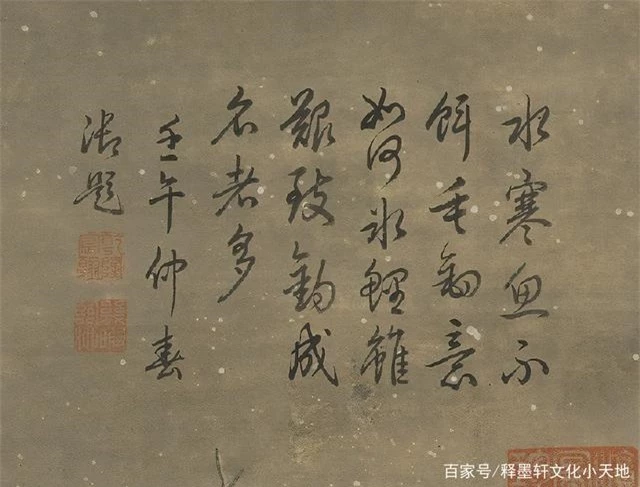 水寒魚不
餌垂釣意
如何氷鯉雖
艱致釣成
名者多
壬午仲春
御題
百家号/释墨轩文化小天地